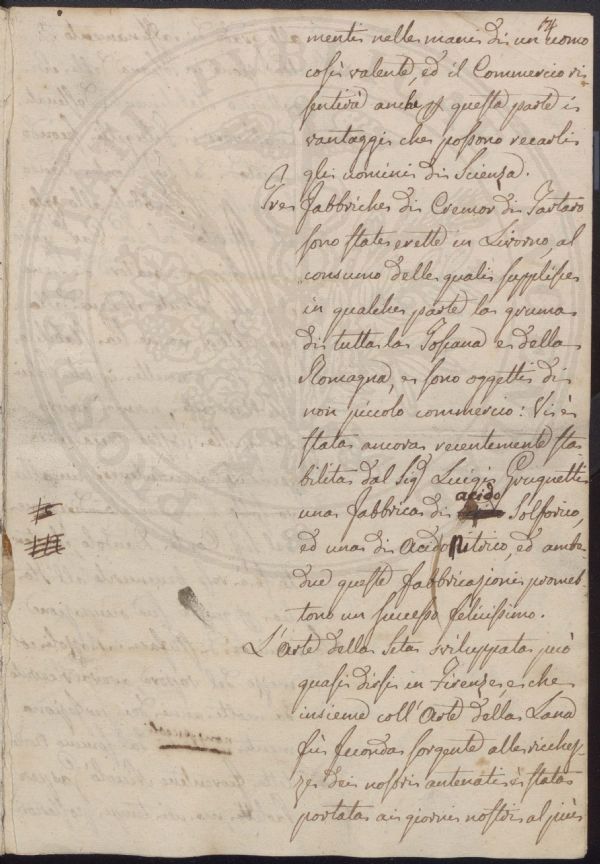 74
menti nelle mani di un uomo
così valente, ed il Commercio ri
sentirà anche p questa parte i
vantaggi che possono recarli
gli uomini di Scienza.
Tre Fabbriche di Cremor di Tartaro
sono state erette in Livorno, al
consumo delle quali supplisce
in qualche parte la gruma
di tutta la Toscana e della
Romagna, e sono oggetti di
non piccolo commercio: Vi è
stata ancora recentemente sta
bilita dal Sig Luigi
una Fabbrica di acido Solforico,
ed una di Acido Nitrico, ed amb
due queste fabbricazioni promet
tono un successo felicissimo.
L'Arte della Seta sviluppata può
quasi dirsi in Firenze, e che
insieme coll'Arte della Lana
fù feconda sorgente alle ricchez
ze dei nostri antenati è stata
portata ai giorni nostri al più